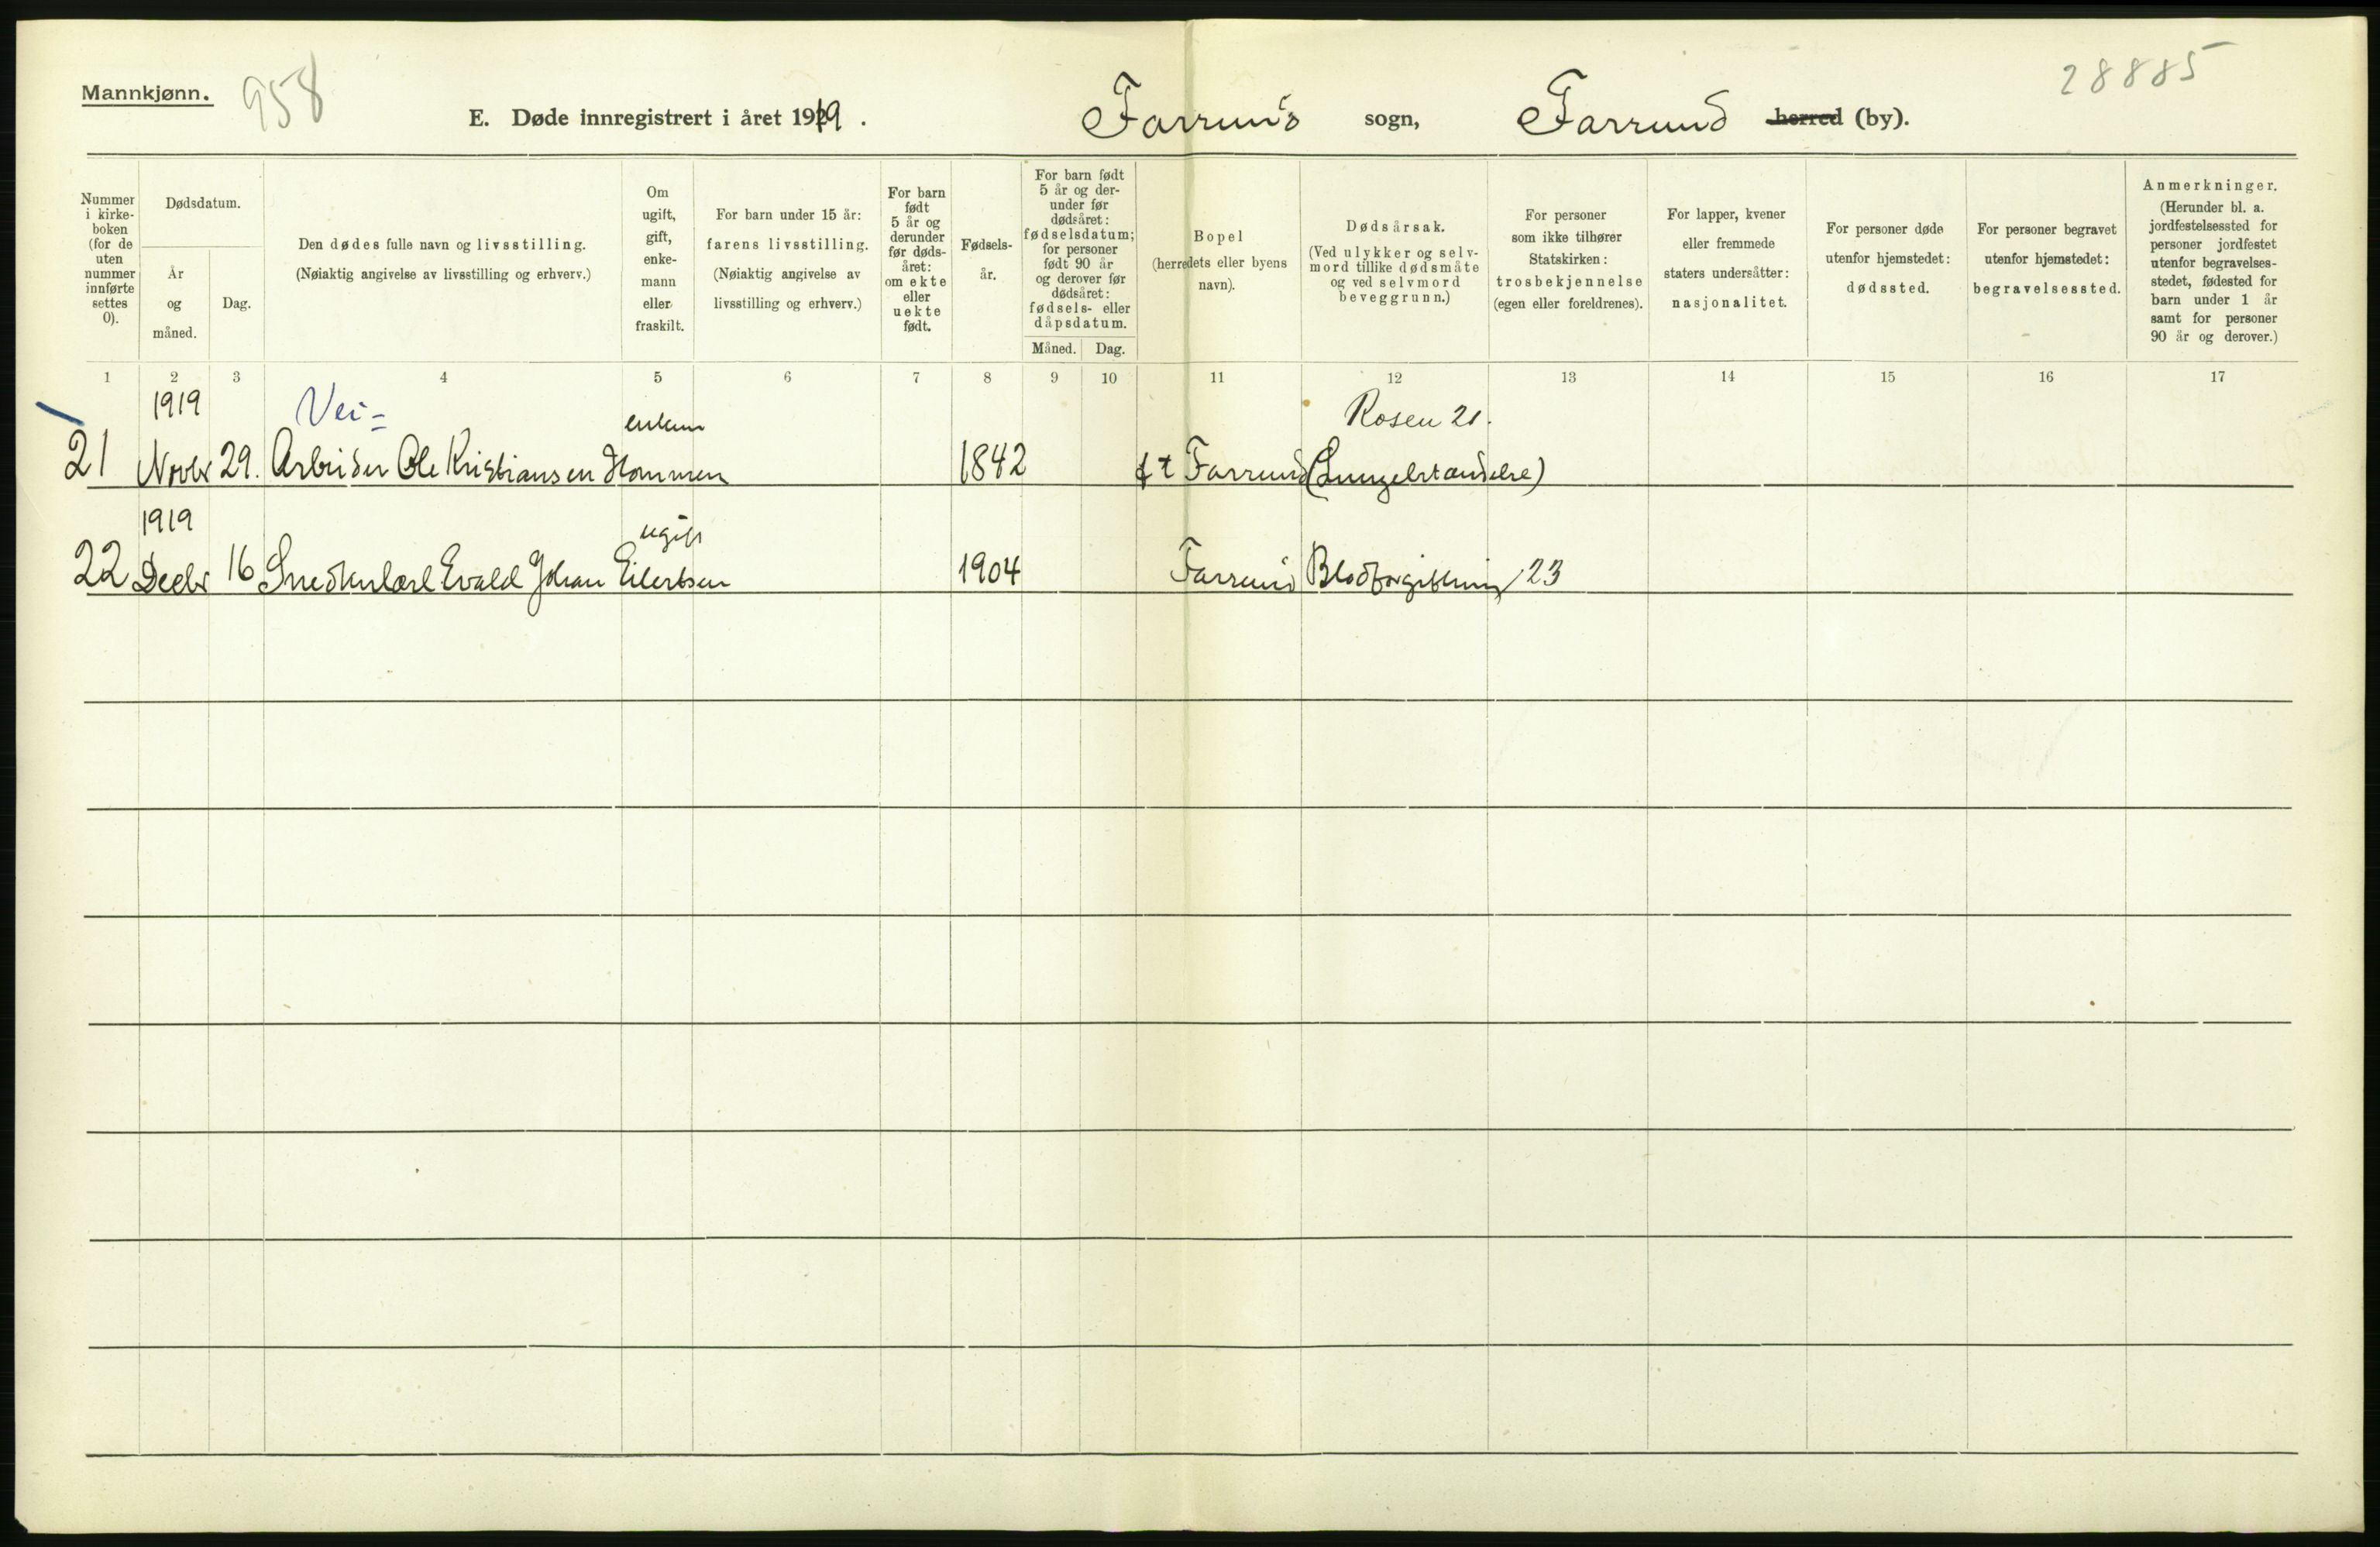 Mannkjønn.
958
28885
E. Døde innregistrert i året 1919.
Farsund sogn, Farsund herred (by).
Nummer i kirke-boken (for de uten nummer innførte settes 0).
Dødsdatum.
År og måned.
Dag.
Den dødes fulle navn og livsstilling.
(Nøiaktig angivelse av livsstilling og erhverv.)
Om ugift, gift, enke-mann eller fraskilt.
For barn under 15 år:
farens livsstilling.
(Nøiaktig angivelse av
livsstilling og erhverv.)
For barn født 5 år og derunder før døds-året: om ekte eller uekte født.
Fødsels-år.
For barn født 5 år og der-under før dødsåret: fødselsdatum; for personer født 90 år og derover før dødsåret: fødsels- eller dåpsdatum.
Måned.
Dag.
Bopel
(herredets eller byens
navn).
Dødsårsak.
(Ved ulykker og selv-
mord tillike dødsmåte
og ved selvmord
beveggrunn.)
For personer
som ikke tilhører
Statskirken:
trosbekjennelse
(egen eller foreldrenes).
For lapper, kvener
eller fremmede
staters undersåtter:
nasjonalitet.
For personer døde
utenfor hjemstedet:
dødssted.
For personer begravet
utenfor hjemstedet:
begravelsessted.
Anmerkninger.
(Herunder bl. a.
jordfestelsessted for
personer jordfestet
utenfor begravelses-
stedet, fødested for
barn under 1 år
samt for personer
90 år og derover.)
1 2 3 4 5 6 7 8 9 10 11 12 13 14 15 16 17
1919 Vei= enkem Rosen 21.
21 Novbr 29. Arbeider Ole Kristiansen Hommen 1842 Farsund (Lungebetændelse)
1919 ugift
22 Decbr 16 Snedkerlærl Evald Johan Eilertsen 1904 Farsund Blodforgiftning 23